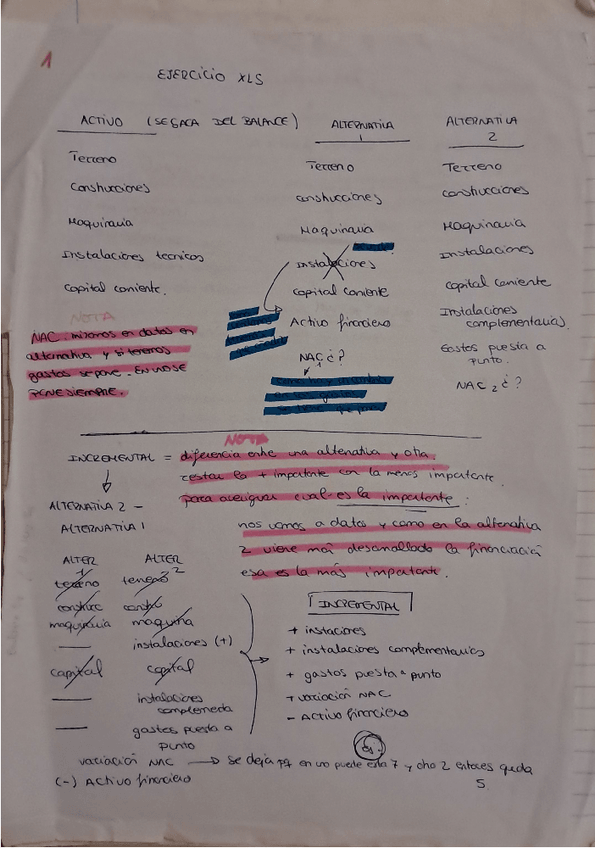 1
EJERCICIO XLS
ACTIVO (SE SACA DEL BALANCE)
Terreno
Construcciones
Maquinaria
Instalaciones tecnicos
Capital corriente.
NOTA
NAC: miramos en datos en
alternativa y si tenemos
gastos se pone. EN UNO SE
PONE SIEMPRE.
ALTERNATIVA
1
Terreno
construcciones
Maquinaria
Instalaciones
Capital corriente
Activo financiero
NAC 1 ¿?
ALTERNATIVA
2
Terreno
construcciones
Maquinaria
Instalaciones
capital corriente
Instalaciones
complementarias.
Gastos puesta a
punto.
NAC 2 ¿?
NOTA
INCREMENTAL = diferencia entre una alternativa y otra.
restar la + importante con la menos importante.
para averiguar cual es la importante:
nos vamos a datos y como en la alternativa
2 viene más desarrollado la financiación
esa es la más importante.
ALTERNATIVA 2 -
ALTERNATIVA 1
ALTER 1 ALTER 2
terreno terreno
construc constru
maquinaria maquina
— instalaciones (+)
capital capital
— instalaciones
complementa
— gastos puesta a
punto
INCREMENTAL
+ instaciones
+ instalaciones complementarias
+ gastos puesta a punto
+ variación NAC
- Activo financiero
variación NAC → se deja pq en uno puede esta 7 y otro 2 entonces queda
5.
(-) Activo financiero